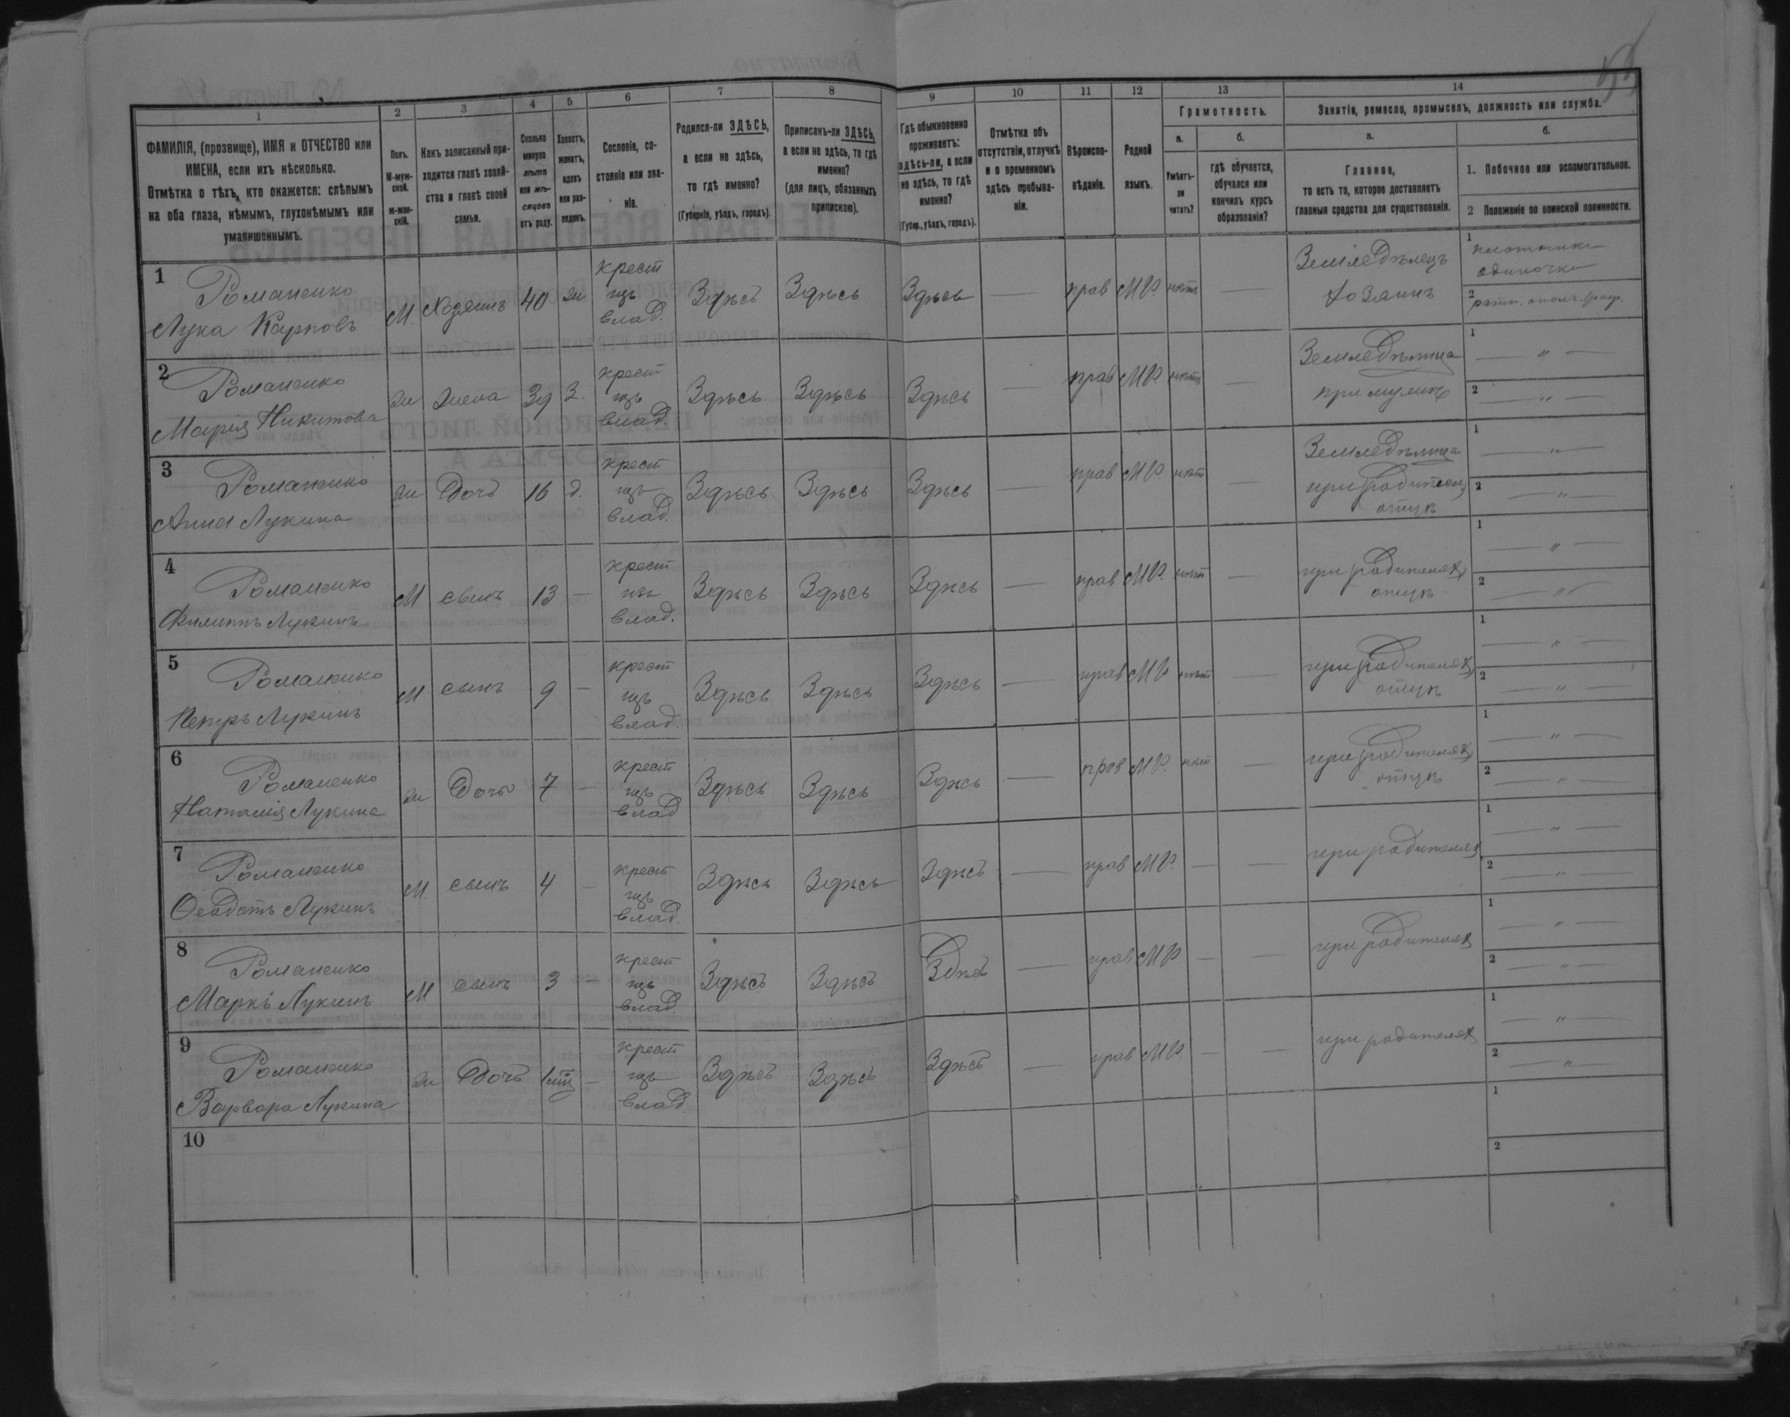 1
ФАМИЛІЯ, (прозвище), ИМЯ и ОТЧЕСТВО или
ИМЕНА, если ихъ нѣсколько.
Отмѣтка о тѣхъ, кто окажется: слѣпымъ
на оба глаза, нѣмымъ, глухонѣмымъ или
умалишеннымъ.
2
Полъ.
М-муж-
ской.
ж-жен-
скій.
3
Какъ записанный при-
ходится главѣ хозяй-
ства и главѣ своей
семьи.
4
Сколько
минуло
лѣтъ
или мѣ-
сяцевъ
отъ роду.
5
Холостъ,
женатъ,
вдовъ
или раз-
веденъ.
6
Сословіе, со-
стояніе или зва-
ніе.
7
Родился-ли ЗДѢСЬ,
а если не здѣсь,
то гдѣ именно?
(Губернія, уѣздъ, городъ).
8
Приписанъ-ли ЗДѢСЬ,
а если не здѣсь, то гдѣ
именно?
(для лицъ, обязанныхъ
припискою).
9
Гдѣ обыкновенно
проживаетъ:
здѣсь-ли, а если
не здѣсь, то гдѣ
именно?
(Губер., уѣздъ, городъ).
10
Отмѣтка объ
отсутствіи, отлучкѣ
и о временномъ
здѣсь пребыва-
ніи.
11
Вѣроиспо-
вѣданіе.
12
Родной
языкъ.
13
Грамотность.
а.
Умѣетъ-
ли
читать?
б.
гдѣ обучается,
обучался или
кончилъ курсъ
образованія?
14
Занятія, ремесло, промыселъ, должность или служба.
а.
Главное,
то есть то, которое доставляетъ
главныя средства для существованія.
б.
1. Побочное или вспомогательное.
2 Положеніе по воинской повинности.
1
Романенко
Лука Карповъ
М. Хозяинъ 40 ж
крест
изъ
влад.
Здѣсь Здѣсь Здѣсь — прав МР нѣтъ —
Земледѣлецъ
хозяинъ
1
одиночка
2
2
Романенко
Марія Никитова
ж жена 39 З.
крест
изъ
влад
Здѣсь Здѣсь Здѣсь — прав МР нѣтъ —
Земледѣлица
при мужѣ
1 — " —
2 — " —
3
Романенко
Анна Лукина
ж Дочь 16 д.
крест
изъ
влад.
Здѣсь Здѣсь Здѣсь — прав МР нѣт —
Земледѣлица
при
отцѣ
1 — " —
2 — " —
4
Романенко
Филиппъ Лукинъ
М сынъ 13 —
крест
изъ
влад.
Здѣсь Здѣсь Здѣсь — прав МР. нѣт —
при родителях
отцѣ
1 — " —
2 — " —
5
Романенко
Петръ Лукинъ
М сынъ 9 —
крест
изъ
влад.
Здѣсь Здѣсь Здѣсь — прав МР нѣт —
при родителях
отцѣ
1 — " —
2 — " —
6
Романенко
Наталія Лукина
ж Дочь 7 —
крест
изъ
влад
Здѣсь Здѣсь Здѣсь — прав МР. нѣт —
при родителях
отцѣ
1 — " —
2 — " —
7
Романенко
Ѳеодотъ Лукинъ
М сынъ 4 —
крест
изъ
влад.
Здѣсь Здѣсь Здѣсь — прав МР. — —
при родителях
1 — " —
2 — " —
8
Романенко
Маркъ Лукинъ
М сынъ 3 —
крест
изъ
влад.
Здѣсь Здѣсь Здѣсь — прав МР — —
при родителях
1 — " —
2 — " —
9
Романенко
Варвара Лукина
ж Дочь —
крест
изъ
влад
Здѣсь Здѣсь Здѣсь — прав МР — —
при родителях
1 — " —
2 — " —
10
1
2